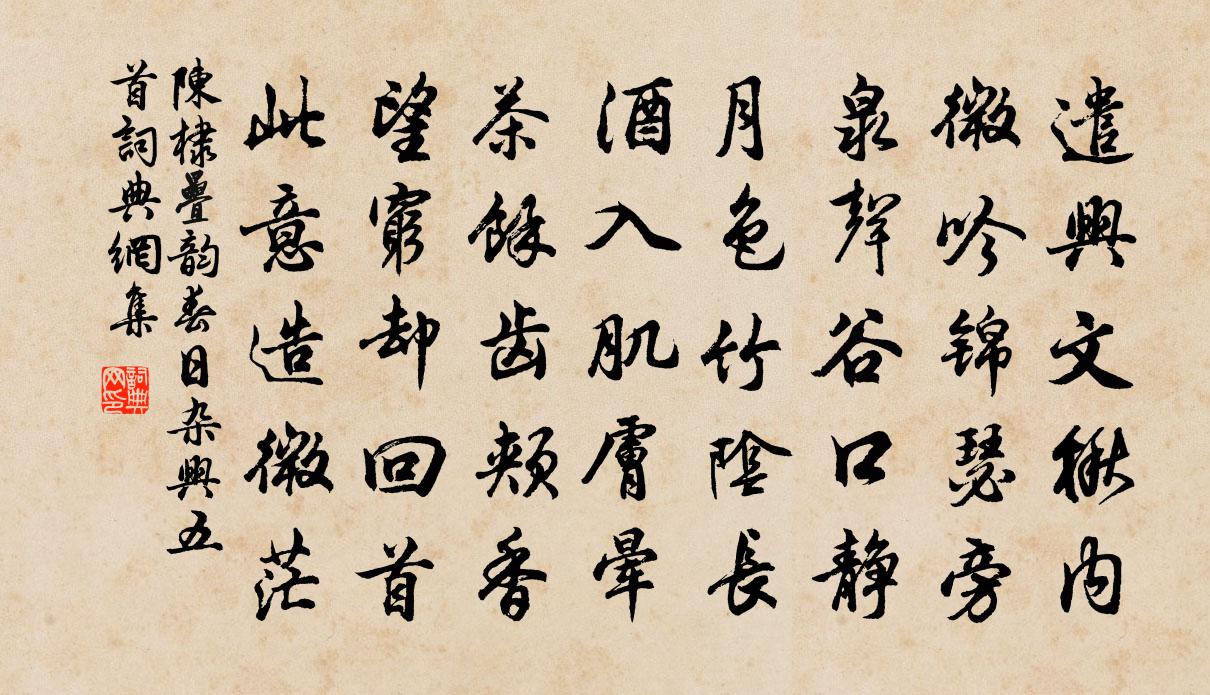 遣興文楸内
微吟锦瑟旁
泉聲谷口静
月色竹陰長
酒入肌膚暈
茶餘齿颊香
望窮却回首
此意造微茫
陳棣疊韵春日杂興五
首詞典網集
詞典网印